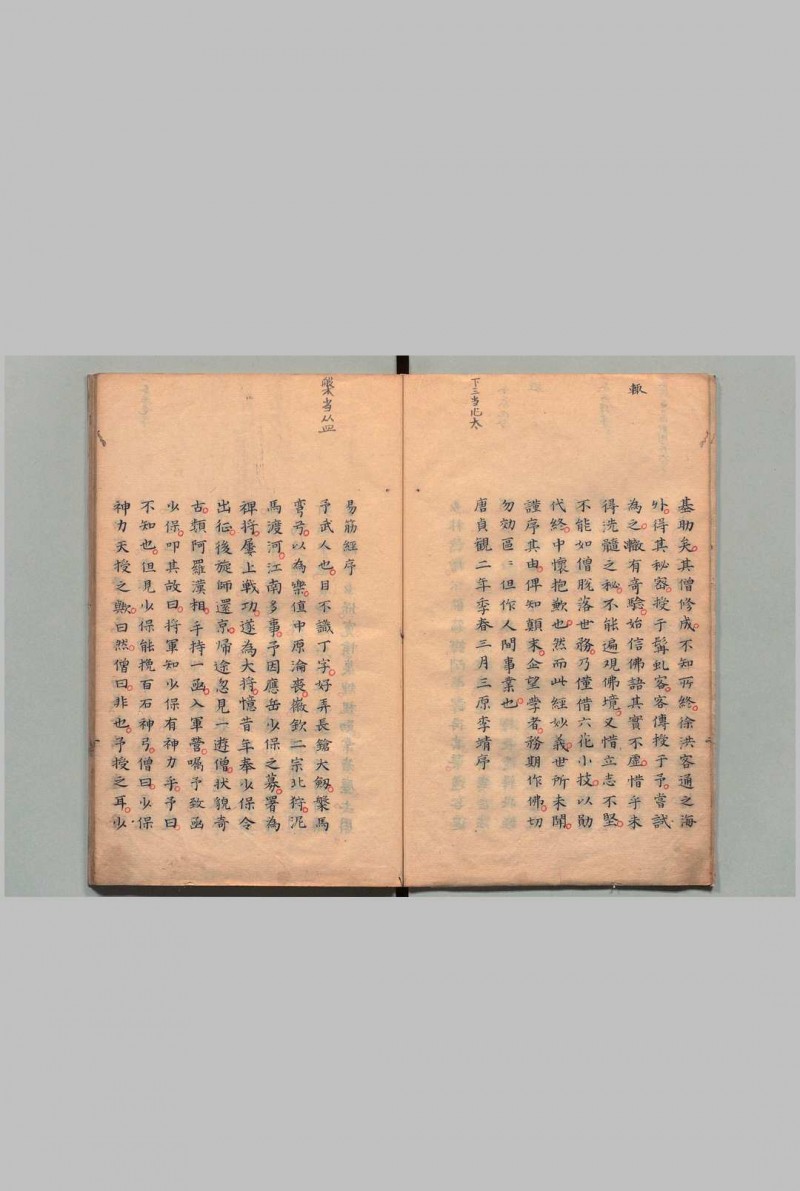 輙
基助矣其僧修成不知所終徐洪客通之海
外得其秘密授于髯虬客客傳授于予嘗試
為之輙有奇驗始信佛語其實不虛惜乎未
得洗髓之秘不能遍观佛境又惜立志不堅
不能如僧脱落世務乃僅借六花小技以勛
代終中懷抱歉也然而此經妙義世所未聞
謹序其由俾知顛末企望学者務期作佛切
勿効區〻但作人間事業也
唐貞觀二年季春三月三原李靖序
易筋經序
予武人也目不識丁字好弄長鎗大劔槃馬
彎弓以為樂值中原淪喪徽欽二宗北狩泥
馬渡河江南多事予因應岳少保之募署為
裨将屢上戰功遂為大将憶昔年奉少保令
出征後旋師還京歸途忽見一遊僧狀貌奇
古類阿羅漢相手持一函入軍營嘱予致函
少保叩其故曰将軍知少保有神力乎予曰
不知也但見少保能挽百石神弓僧曰少保
神力天授之歟曰然僧曰非也予授之耳少